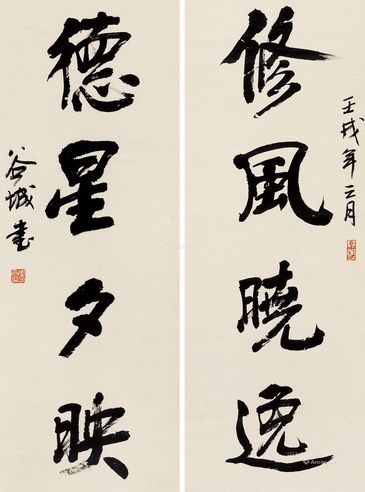 壬戌年三月
修風曉逸
德星夕映
谷城書